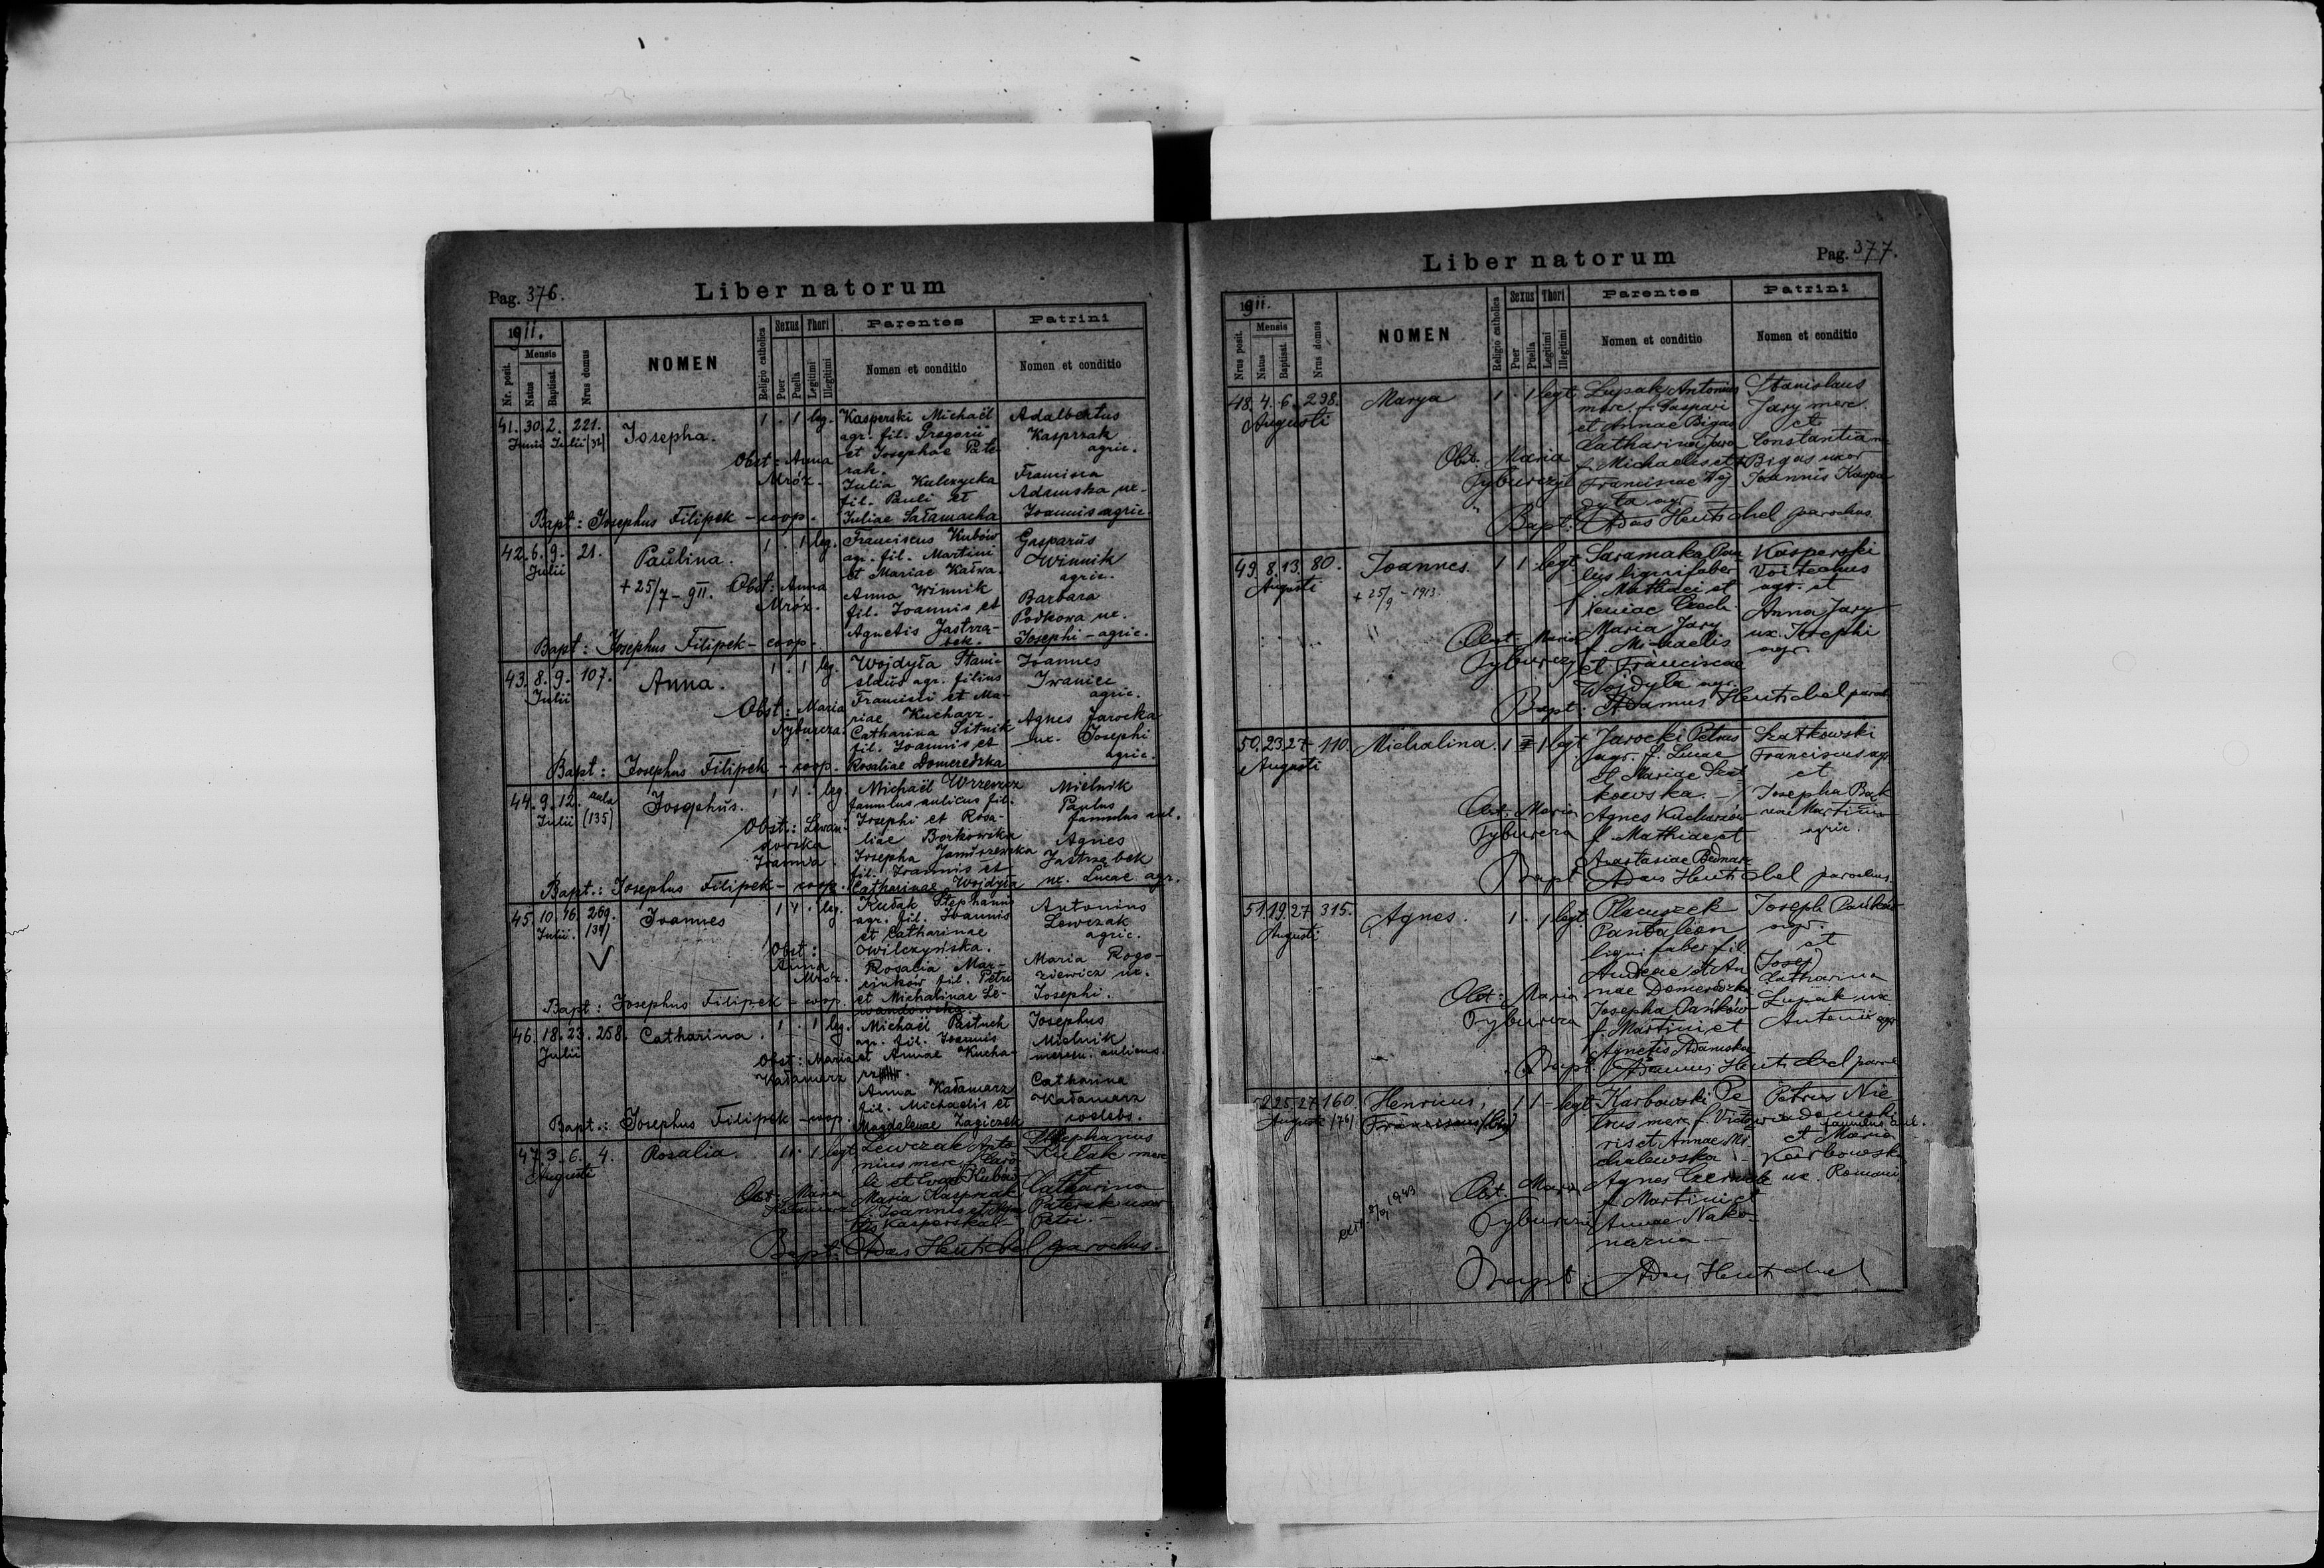 Pag. 376.
Liber natorum
1911.
Nr. posit.
Mensis
Natus
Baptisat.
Nrus domus
NOMEN
Religio catholica
Sexus
Puer
Puella
Thori
Legitimi
Illegitimi
Parentes
Nomen et conditio
Patrini
Nomen et conditio
41. 30. 2. 221.
Junii Julii
Josepha.
1 . 1 leg.
Obst: Anna
Mróz.
Kasperski Michaël
agr. fil. Gregorii
et Josephae Pate-
rak.
Julia Kulczycka
fil. Pauli et
Juliae Sałamacha
Adalbertus
Kasprzak
agric.
Francisca
Adamska ux.
Joannis agric.
Bapt: Josephus Filipek - coop.
42. 6. 9. 21.
Julii
Paulina.
+ 25/7 - 911.
1 . 1 leg.
Obst: Anna
Mróz.
Franciscus Kubów
agr. fil. Martini
et Mariae Kałwa.
Anna Winnik
fil. Joannis et
Agnetis Jastrzą-
bek.
Gasparus
Winnik
agric.
Barbara
Podkowa ux.
Josephi - agric.
Bapt: Josephus Filipek - coop.
43. 8. 9. 107.
Julii
Anna.
1 . 1 leg.
Obst: Maria
Tyburcza.
Wojdyła Stani-
slaus agr. filius
Francisci et Ma-
riae Kucharz.
Catharina Sitnik
fil. Joannis et
Rosaliae Domeredzka
Joannes
Iwaniec
agric.
Agnes Jarocka
ux. Josephi
agric.
Bapt: Josephus Filipek - coop.
44. 9. 12. aula
Julii (135)
Josephus.
1 1 . leg.
Obst.: Lewan-
dowska
Joanna.
Michaël Wrzeszcz
famulus aulicus fil.
Josephi et Rosa-
liae Borkowska
Josepha Januszewska
fil. Joannis et
Catharinae Wojdyła
Mielnik
Paulus
famulus aul.
Agnes
Jastrząbek
ux. Lucae agr.
Bapt.: Josephus Filipek - coop.
45. 10. 16. 269.
Julii.
Joannes
1 1 . leg.
Obst:
Anna
Mróz.
Kudak Stephanus
agr. fil. Joannis
et Catharinae
Wilczyńska.
Rosalia Mar-
cinków fil. Petri
et Michalinae Le-
wandowska
Antonius
Lewczak
agric.
Maria Rogo-
ziewicz ux.
Josephi.
Bapt: Josephus Filipek - coop.
46. 18. 23. 258.
Julii
Catharina.
1 . 1 leg.
Obst: Maria
Kałamarz
Michaël Pastuch
agr. fil. Joannis
et Annae Kucha-
Anna Kałamarz
fil. Michaelis et
Magdalenae Zagiczek
Josephus
Mielnik
aulicus.
Catharina
Kałamarz
coelebs.
Bapt.: Josephus Filipek - coop.
47. 3. 6. 4.
Augusti
Rosalia.
legt
Obst. Maria
Lewczak Anto-
nius merc.
Maria Kasprzak
f. Joannis et
Kasperska
Stephanus
Kulak merc.
et
Catharina
Paterak uxor
Petri.
Bapt: Adas Hentschel parochus.
Liber natorum
Pag. 377.
1911.
Nrus posit.
Mensis
Natus
Baptisat.
Nrus domus
NOMEN
Religio catholica
Sexus
Puer
Puella
Thori
Legitimi
Illegitimi
Parentes
Nomen et conditio
Patrini
Nomen et conditio
48. 4. 6. 298.
Augusti
Marya
1 . 1 legt
Obst. Maria
Lupak Antonius
merc. f. Gaspari
et Annae Bigas
Catharina
f. Michaelis et
Franciscae Woj-
dyła agr.
Stanislaus
Jary merc.
et
Constantia
Bigas uxor
Joannis
Bapt: Adas Hentschel parochus
49. 8. 13. 80.
Augusti
Joannes.
+ 25/9 - 1913
1 1 . legt
Obst. Maria
Saramaka Pau-
lus lignifaber
f. Mathaei et
Maria Jary
f. Michaelis
et Franciscae
Wojdyła agr.
Kasperski
agr. et
Anna Jary
ux. Josephi
agr.
Bapt: Adamus Hentschel paroch
50. 23. 27. 110.
Augusti
Michalina.
1 legt
Obst. Maria
Tyburcza
Jarocki Petrus
agr. f. Lucae
et Mariae Szat-
kowska.
Agnes Kucharów
f. Mathiae et
Anastasiae Bednarz
Szatkowski
Franciscus agr.
et
Josepha Bąk
uxor Martini
agric.
Bapt: Adas Hentschel parochus.
51. 19. 27. 315.
Augusti
Agnes.
1 . 1 legt
Obst: Maria
Tyburcza
Placuszek
Pantaleon
lignifaber fil
Andreae et An-
nae Domeredzka
Josepha Pańków
f. Martini et
Agnetis Adamska
Joseph Pańków
agr.
et
(Josep)
Catharina
Lupak ux
Antonii agr
Bapt: Adamus Hentschel paroch
52. 25. 27. 160.
Augusti (76)
Henricus,
Franciscus
1 1 - legt
Obst. Maria
Karbowski Pe-
trus merc f. Victo-
ris et Annae Mi-
chalewska
Agnes
f. Martini et
Annae Nako-
neczna
Petrus Nie-
famulus aul.
et Maria
Karbowska
ux. Romani
1943
Bapt: Adas Hentschel